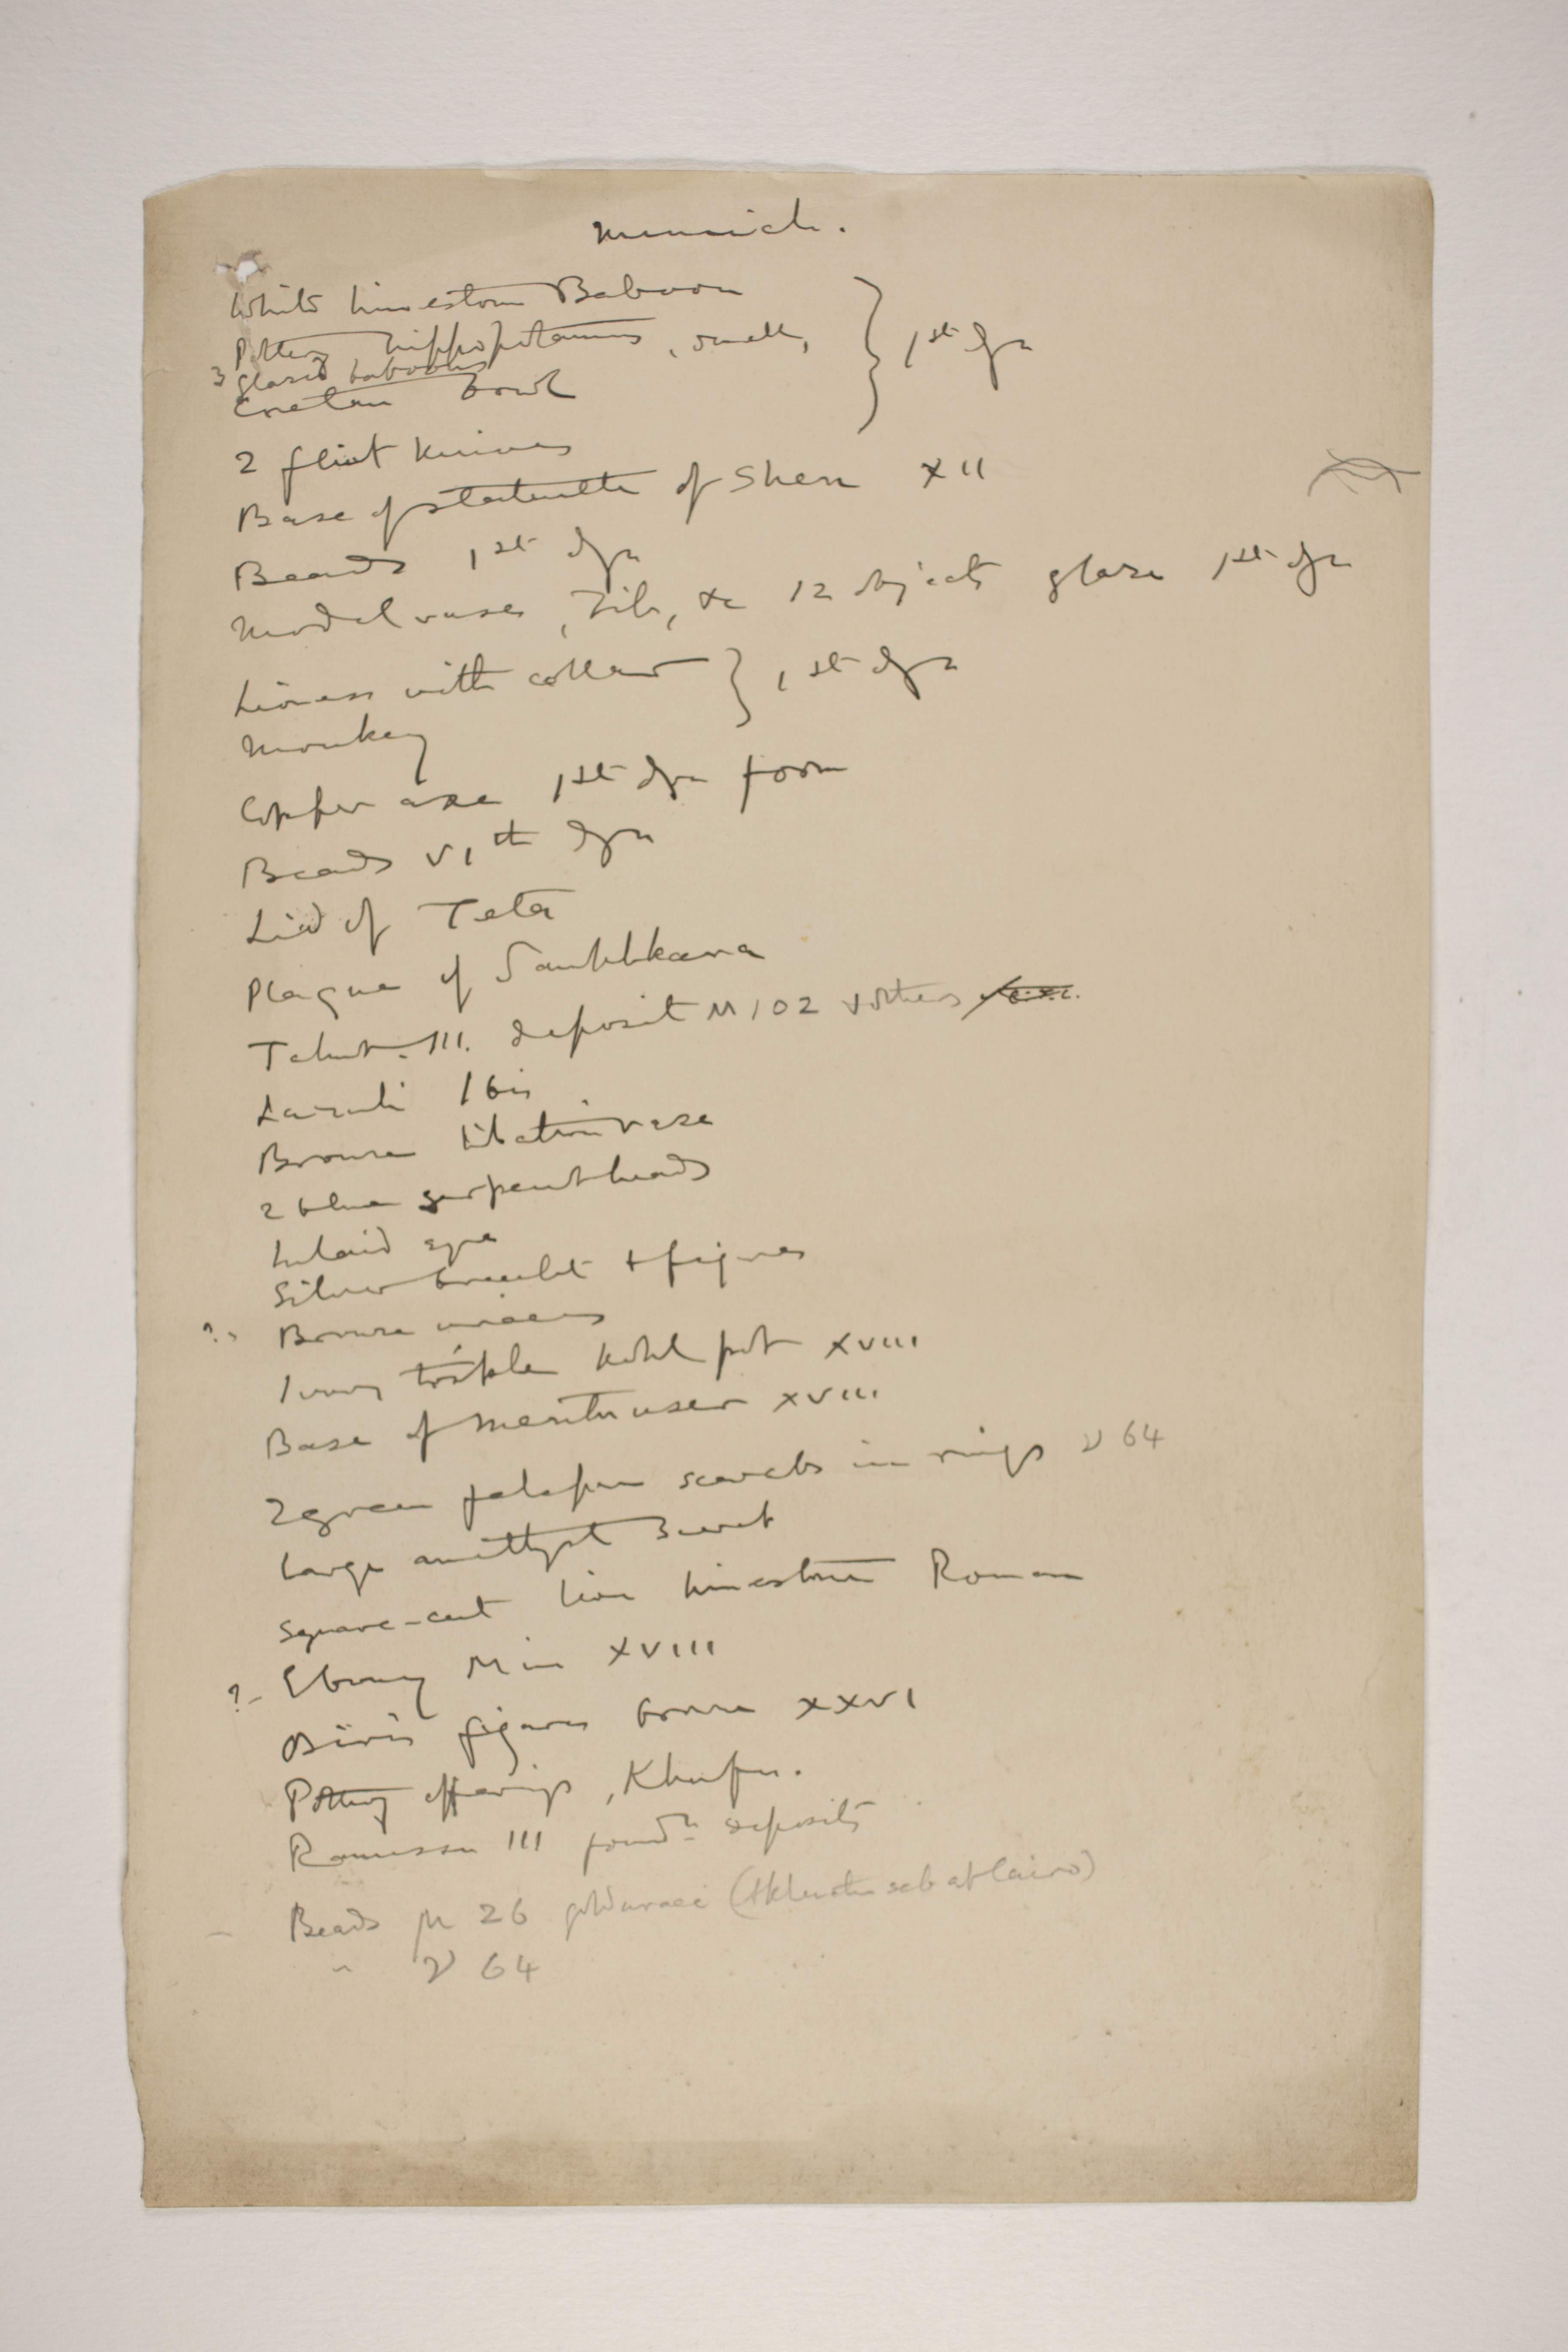 Munich.
White limestone Baboon
Pottery hippopotamus, small, } 1st dyn
3 glazed baboons
Cretan bowl
2 flint knives
Base of statuette of Shera XII
Beads 1st dyn
Model vases, Tile, &c 12 objects glaze 1st dyn
Lioness with collar } 1st dyn
Monkey
Copper axe 1st dyn form
Beads VIth dyn
Lid of Teta
Plaque of Sankhkara
Tahut. III. deposit M 102 & others
Lazuli Ibis
Bronze libation vase
2 blue serpent heads
Inlaid eye
Silver bracelet & figures
?. Bronze
Ivory triple kohl pot XVIII
Base of Merituser XVIII
2 green felspar scarabs in rings ν 64
Large amethyst Scarab
Square-cut lion limestone Roman
?- Ebony Min XVIII
Osiris figures bronze XXVI
Pottery offerings, Khufu.
Ramessu III foundn deposits
- Beads μ 26 (Khentuseb at Cairo)
" ν 64